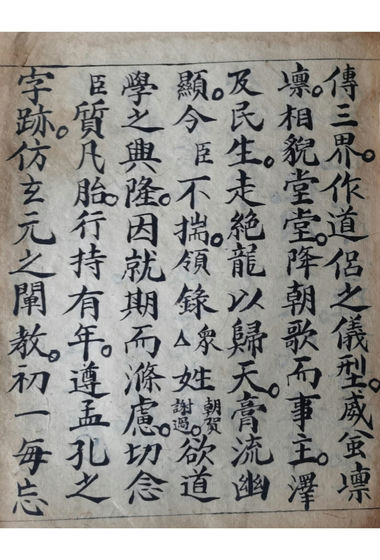 傳三界。作道侶之儀型。威凬凛
凛。相貌堂堂。降朝歌而事主。澤
及民生。走絶龍以歸天。膏流幽
顯。今臣不揣。領錄△衆姓朝賀謝過。欲道
學之興隆。因就期而滌慮。切念
臣質凡胎。行持有年。遵孟孔之
字跡。仿玄元之闡教。初一每忘